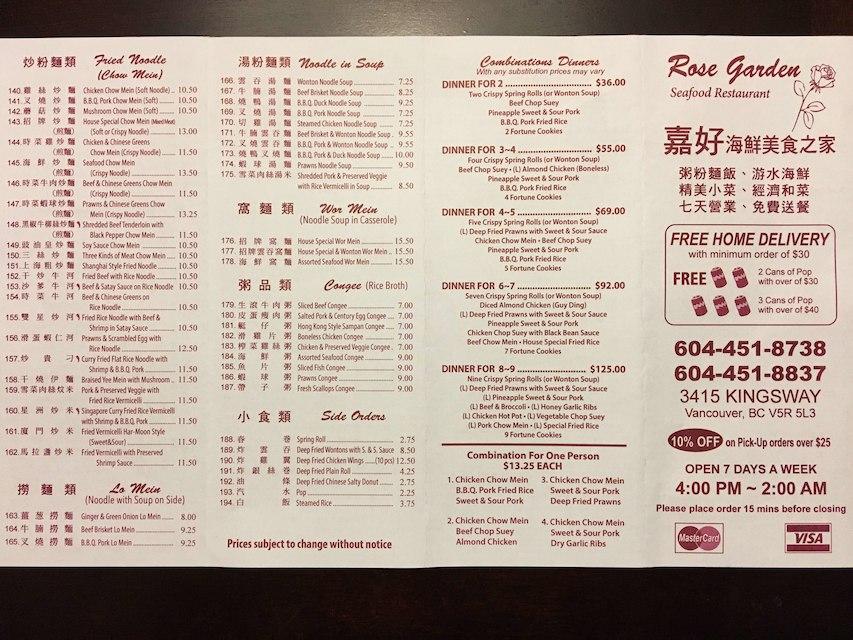 炒粉麵類 Fried Noodle
(Chow Mein)
140. 雞絲炒麵 Chicken Chow Mein (Soft Noodle) .. 10.50
141. 叉燒炒麵 B.B.Q. Pork Chow Mein (Soft) .......... 10.50
142. 蘑菇炒麵 Mushroom Chow Mein (Soft) ........... 10.50
143. 招牌炒麵 House Special Chow Mein (Mixed Meat)
(煎麵) (Soft or Crispy Noodle) .................. 13.00
144. 時菜雞炒麵 Chicken & Chinese Greens
(煎麵) Chow Mein (Crispy Noodle) ........... 11.50
145. 海鮮炒麵 Seafood Chow Mein
(煎麵) (Crispy Noodle) ............................. 13.50
146. 時菜牛肉炒麵 Beef & Chinese Greens Chow Mein
(煎麵) (Crispy Noodle) ............................. 11.50
147. 時菜蝦球炒麵 Prawns & Chinese Greens Chow
(煎麵) Mein (Crispy Noodle) .................... 13.25
148. 黑椒牛柳絲炒麵 Shredded Beef Tenderloin with
(煎麵) Black Pepper Chow Mein ............... 11.50
149. 豉油皇炒麵 Soy Sauce Chow Mein ..................... 10.50
150. 三絲炒麵 Three Kinds of Meat Chow Mein ...... 10.50
151. 上海粗炒麵 Shanghai Style Fried Noodle ............ 10.50
152. 干炒牛河 Fried Beef with Rice Noodle .............. 10.50
153. 沙爹牛河 Beef & Satay Sauce on Rice Noodle 10.50
154. 時菜牛河 Beef & Chinese Greens on
Rice Noodle ................................... 10.50
155. 雙星炒河 Fried Rice Noodle with Beef &
Shrimp in Satay Sauce ................... 10.50
156. 滑蛋蝦仁河 Prawns & Scrambled Egg with
Rice Noodle ................................... 12.50
157. 炒貴刁 Curry Fried Flat Rice Noodle with
Shrimp & B.B.Q. Pork ..................... 11.50
158. 干燒伊麵 Braised Yee Mein with Mushroom .. 11.50
159. 雪菜肉絲炆米 Pork & Preserved Veggie with
Fried Rice Vermicelli ...................... 11.50
160. 星洲炒米 Singapore Curry Fried Rice Vermicelli
with Shrimp & B.B.Q. Pork ............ 11.50
161. 廈門炒米 Fried Vermicelli Har-Moon Style
(Sweet&Sour) ................................ 11.50
162. 馬拉盞炒米 Fried Vermicelli with Preserved
Shrimp Sauce ................................. 11.50
撈麵類 Lo Mein
(Noodle with Soup on Side)
163. 薑葱撈麵 Ginger & Green Onion Lo Mein ....... 8.00
164. 牛腩撈麵 Beef Brisket Lo Mein ....................... 9.25
165. 叉燒撈麵 B.B.Q. Pork Lo Mein ........................ 9.25
湯粉麵類 Noodle in Soup
166. 雲吞湯麵 Wonton Noodle Soup ..................... 7.25
167. 牛腩湯麵 Beef Brisket Noodle Soup ................ 8.25
168. 燒鴨湯麵 B.B.Q. Duck Noodle Soup ................ 9.25
169. 叉燒湯麵 B.B.Q. Pork Noodle Soup ................ 7.25
170. 切雞湯麵 Steamed Chicken Noodle Soup ....... 7.25
171. 牛腩雲吞麵 Beef Brisket & Wonton Noodle Soup .. 9.55
172. 叉燒雲吞麵 B.B.Q. Pork & Wonton Noodle Soup .. 9.55
173. 燒鴨叉燒麵 B.B.Q. Pork & Duck Noodle Soup ...... 10.00
174. 蝦球湯麵 Prawns Noodle Soup ...................... 9.50
175. 雪菜肉絲湯米 Shredded Pork & Preserved Veggie
with Rice Vermicelli in Soup ............. 8.50
窩麵類 Wor Mein
(Noodle Soup in Casserole)
176. 招牌窩麵 House Special Wor Mein .................. 15.50
177. 招牌雲吞窩麵 House Special & Wonton Wor Mein .. 15.50
178. 海鮮窩麵 Assorted Seafood Wor Mein ............ 15.50
粥品類 Congee (Rice Broth)
179. 生滾牛肉粥 Sliced Beef Congee ......................... 7.00
180. 皮蛋瘦肉粥 Salted Pork & Century Egg Congee ... 7.00
181. 艇仔粥 Hong Kong Style Sampan Congee .... 7.00
182. 滑雞片粥 Boneless Chicken Congee ............... 7.00
183. 榨菜雞絲粥 Chicken & Preserved Veggie Congee . 7.00
184. 海鮮粥 Assorted Seafood Congee .............. 9.00
185. 魚片粥 Sliced Fish Congee ......................... 9.00
186. 蝦球粥 Prawns Congee .............................. 9.00
187. 帶子粥 Fresh Scallops Congee .................... 9.00
小食類 Side Orders
188. 春卷 Spring Roll ..................................... 2.75
189. 炸雲吞 Deep Fried Wontons with S. & S. Sauce 8.50
190. 炸雞翼 Deep Fried Chicken Wings ......(10 pcs) 12.50
191. 炸銀絲卷 Deep Fried Plain Roll ....................... 4.25
192. 油條 Deep Fried Chinese Salty Donut ....... 2.75
193. 汽水 Pop ................................................ 2.25
194. 白飯 Steamed Rice ................................. 3.75
Prices subject to change without notice
Combinations Dinners
With any substitution prices may vary
DINNER FOR 2 ................................ $36.00
Two Crispy Spring Rolls (or Wonton Soup)
Beef Chop Suey
Pineapple Sweet & Sour Pork
B.B.Q. Pork Fried Rice
2 Fortune Cookies
DINNER FOR 3~4 ............................ $55.00
Four Crispy Spring Rolls (or Wonton Soup)
Beef Chop Suey • (L) Almond Chicken (Boneless)
Pineapple Sweet & Sour Pork
B.B.Q. Pork Fried Rice
4 Fortune Cookies
DINNER FOR 4~5 ............................ $69.00
Five Crispy Spring Rolls (or Wonton Soup)
(L) Deep Fried Prawns with Sweet & Sour Sauce
Chicken Chow Mein • Beef Chop Suey
Pineapple Sweet & Sour Pork
B.B.Q. Pork Fried Rice
5 Fortune Cookies
DINNER FOR 6~7 ............................ $92.00
Seven Crispy Spring Rolls (or Wonton Soup)
Diced Almond Chicken (Guy Ding)
(L) Deep Fried Prawns with Sweet & Sour Sauce
Pineapple Sweet & Sour Pork
Chicken Chop Suey with Black Bean Sauce
Beef Chow Mein • House Special Fried Rice
7 Fortune Cookies
DINNER FOR 8~9 .......................... $125.00
Nine Crispy Spring Rolls (or Wonton Soup)
(L) Deep Fried Prawns with Sweet & Sour Sauce
(L) Pineapple Sweet & Sour Pork
(L) Beef & Broccoli • (L) Honey Garlic Ribs
(L) Chicken Hot Pot • (L) Vegetable Chop Suey
(L) Pork Chow Mein • (L) Special Fried Rice
9 Fortune Cookies
Combination For One Person
$13.25 EACH
1. Chicken Chow Mein
B.B.Q. Pork Fried Rice
Sweet & Sour Pork
2. Chicken Chow Mein
Beef Chop Suey
Almond Chicken
3. Chicken Chow Mein
Sweet & Sour Pork
Deep Fried Prawns
4. Chicken Chow Mein
Sweet & Sour Pork
Dry Garlic Ribs
Rose Garden
Seafood Restaurant
嘉好海鮮美食之家
粥粉麵飯、游水海鮮
精美小菜、經濟和菜
七天營業、免費送餐
FREE HOME DELIVERY
with minimum order of $30
FREE 2 Cans of Pop
with over of $30
3 Cans of Pop
with over of $40
604-451-8738
604-451-8837
3415 KINGSWAY
Vancouver, BC V5R 5L3
10% OFF on Pick-Up orders over $25
OPEN 7 DAYS A WEEK
4:00 PM ~ 2:00 AM
Please place order 15 mins before closing
MasterCard VISA